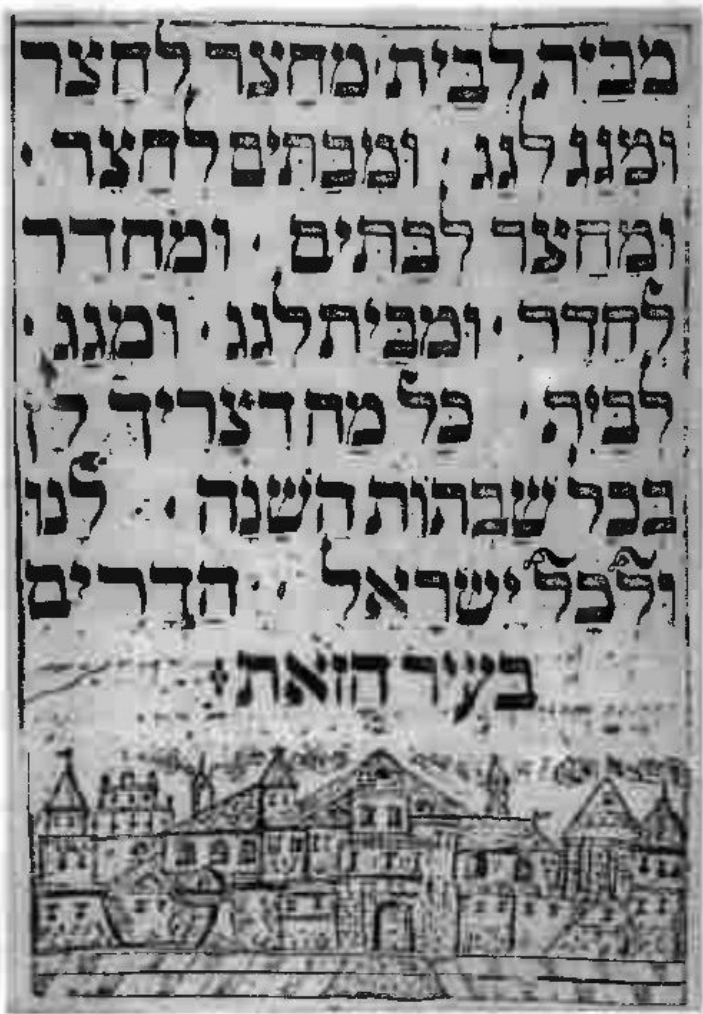 מבית לבית · מחצר לחצר
ומגג לגג · ומבתים לחצר ·
ומחצר לבתים · ומחדר
לחדר · ומבית לגג · ומגג ·
לבית · כל מה דצריך לן
בכל שבתות השנה · לנו
ולכל ישראל · הדרים
בעיר הזאת :